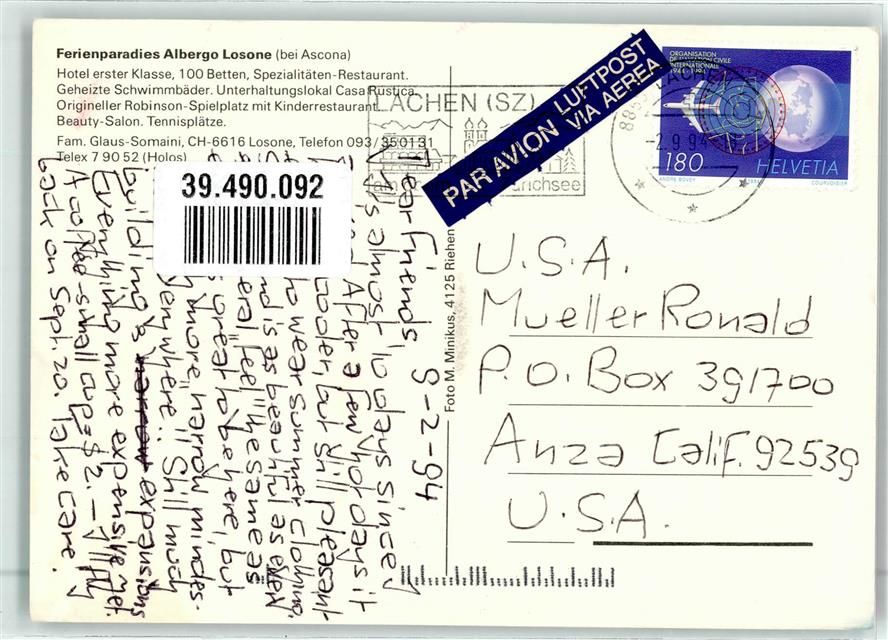 Ferienparadies Albergo Losone (bei Ascona)
Hotel erster Klasse, 100 Betten, Spezialitäten-Restaurant.
Geheizte Schwimmbäder. Unterhaltungslokal Casa Rustica.
Origineller Robinson-Spielplatz mit Kinderrestaurant.
Beauty-Salon. Tennisplätze.
Fam. Glaus-Somaini, CH-6616 Losone, Telefon 093/350131
Telex 7 90 52 (Holos)
39.490.092
Dear friends, 9-2-94
almost 10 days since
After a few hot days it
cooler, but still pleasant
to wear summer clothing.
and is as beautiful as ever
is great to be here, but
feel "the same as
more" narrow mindes-
everywhere!! Still much
building & narrow expansions
Everything more expensive yet.
A coffee-small cup=$2.-
back on Sept. 20. Take care.
Foto M. Minikus, 4125 Riehen
LACHEN (SZ)
PAR AVION LUFTPOST
VIA AEREA
-2.9.94
ORGANISATION
DE L'AVIATION CIVILE
INTERNATIONALE
1944-1994
180
HELVETIA
COURVOISIER
U.S.A.
Mueller Ronald
P.O. Box 391700
Anza Calif. 92539
U.S.A.